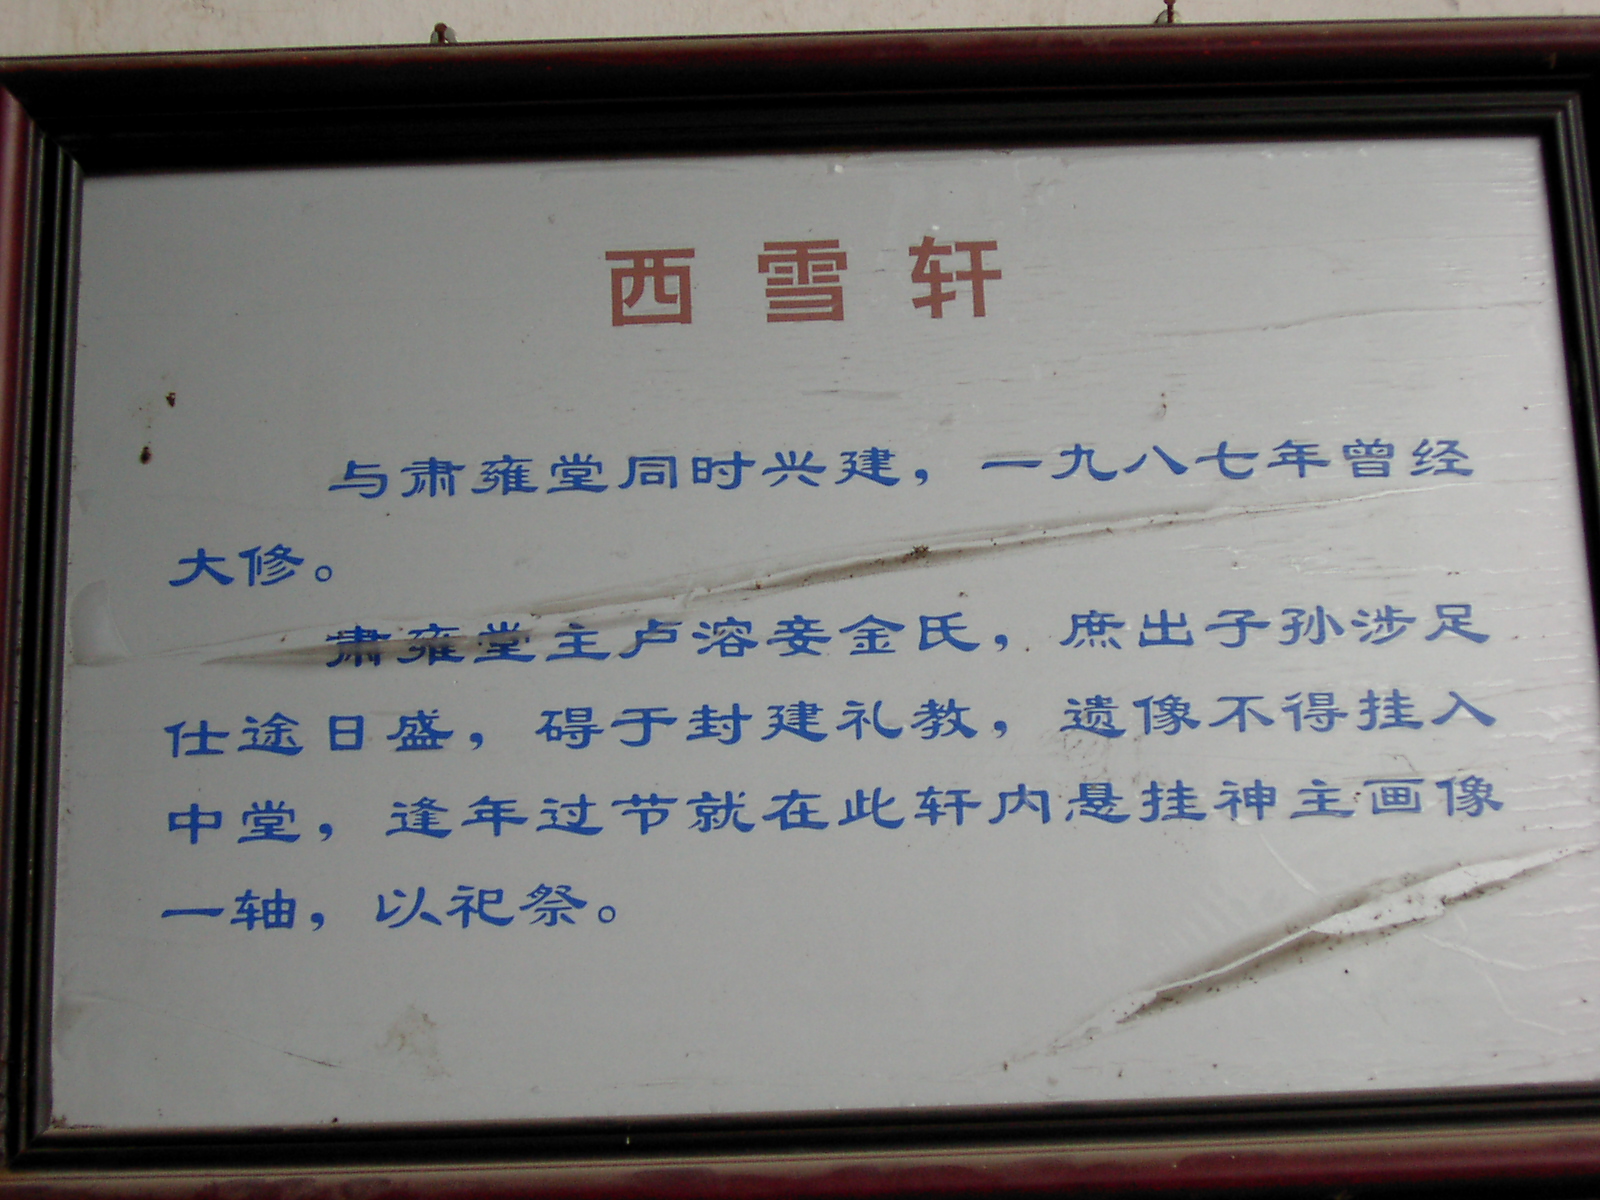 西雪轩
与肃雍堂同时兴建，一九八七年曾经
大修。
肃雍堂主卢溶妾金氏，庶出子孙涉足
仕途日盛，碍于封建礼教，遗像不得挂入
中堂，逢年过节就在此轩内悬挂神主画像
一轴，以祀祭。